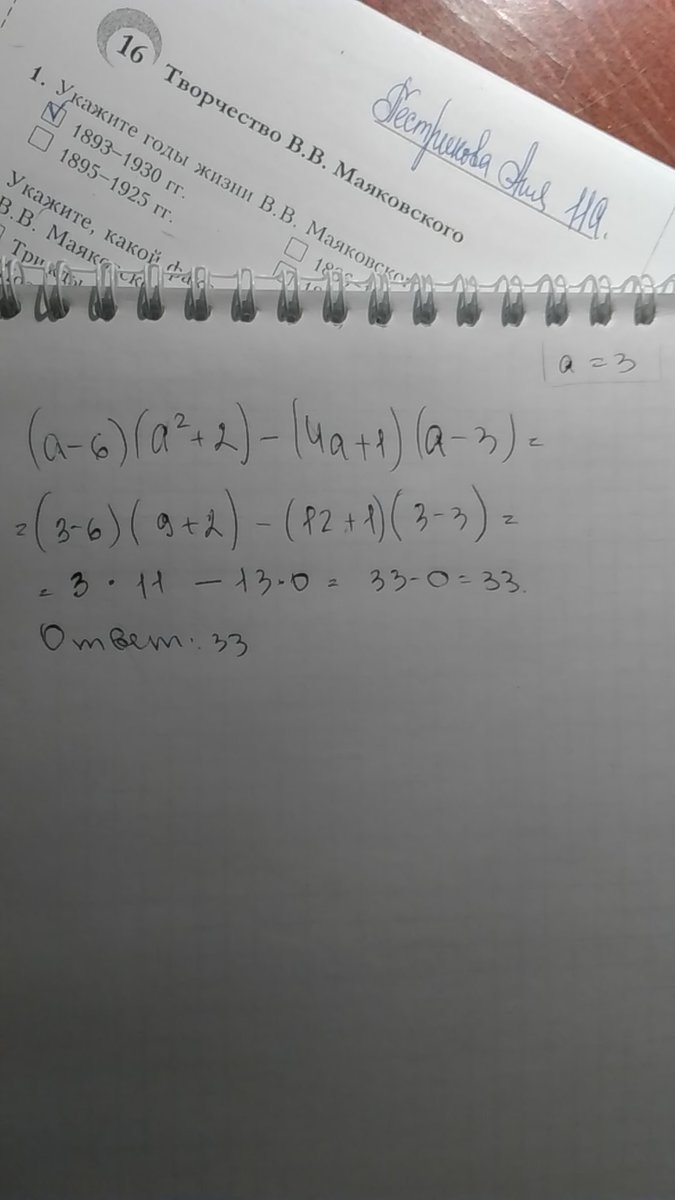 16 Творчество В.В. Маяковского
Пестрикова Аня 11а.
1. Укажите годы жизни В.В. Маяковско
1893–1930 гг.
1895–1925 гг.
Укажите, какой
В.В. Маяковск
a = 3
(a-6)(a²+2) - (4a+1)(a-3) =
= (3-6)(9+2) - (12+1)(3-3) =
= 3 · 11 - 13·0 = 33-0=33.
Ответ: 33